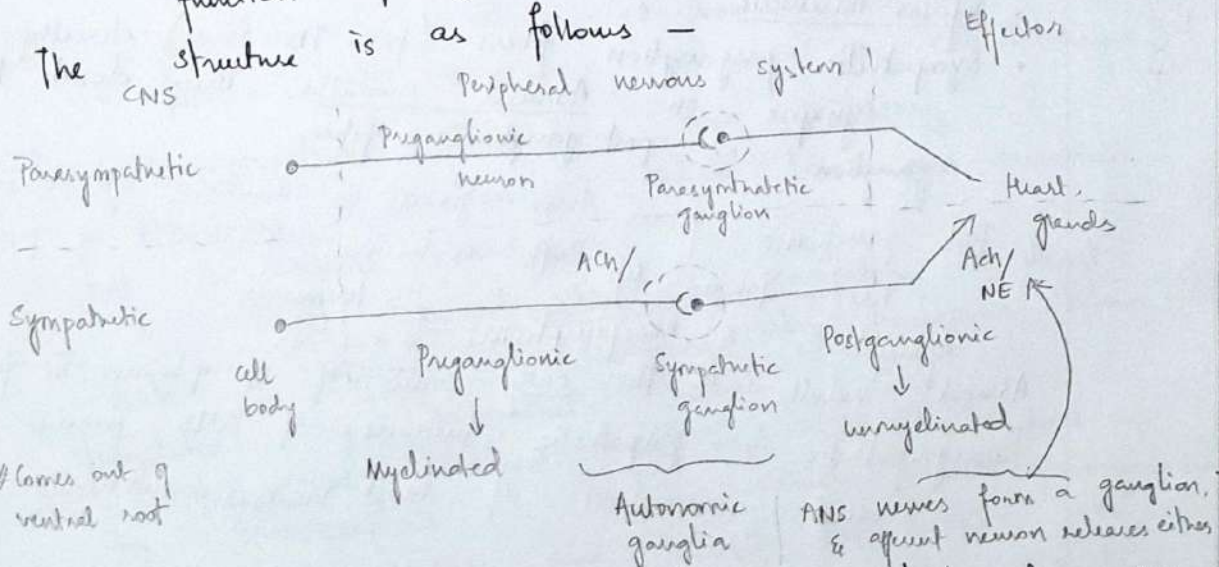 The structure is as follows -
CNS
Peripheral nervous system
Effectors
Parasympathetic
Preganglionic
neuron
Parasymthatetic
ganglion
Heart,
glands
ACh/
Ach/
NE
Sympathetic
cell
body
Preganglionic
↓
Myelinated
Sympathetic
ganglion
Postganglionic
↓
unmyelinated
# Comes out of
ventral root
Autonomic
ganglia
ANS nerves form a ganglion,
& afferent neuron releases either